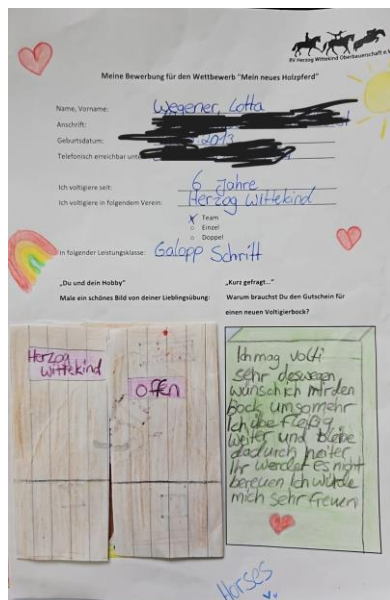 RV Herzog Wittekind Oberbauerschaft e.V.
Meine Bewerbung für den Wettbewerb "Mein neues Holzpferd"
Name, Vorname: Wegener, Lotta
Anschrift:
Geburtsdatum: 2013
Telefonisch erreichbar unter
Ich voltigiere seit: 6 Jahre
Ich voltigiere in folgendem Verein: Herzog Wittekind
x Team
o Einzel
o Doppel
In folgender Leistungsklasse: Galopp Schritt
„Du und dein Hobby"
Male ein schönes Bild von deiner Lieblingsübung:
Herzog
Wittekind
offen
„Kurz gefragt..."
Warum brauchst Du den Gutschein für
einen neuen Voltigierbock?
Ich mag Volti
sehr deswegen
wünsch ich mir den
Bock umsomehr
Ich übe fleißig
weiter und bleibe
dadurch heiter
Ihr werdet es nicht
bereuen Ich würde
mich sehr freuen
Horses